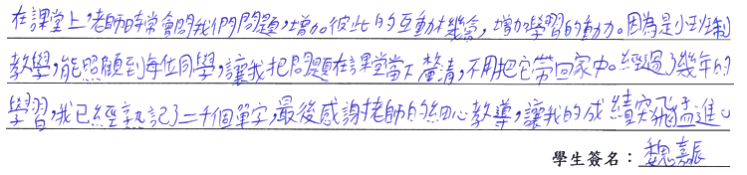 在課堂上，老師時常會問我們問題，增加彼此的互動機會，增加學習的動力。因為是小班制
教學，能照顧到每位同學，讓我把問題在課堂當下釐清，不用把它帶回家中。經過了幾年的
學習，我已經熟記了二千個單字，最後感謝老師的細心教導，讓我的成績突飛猛進。
學生簽名：魏嘉辰